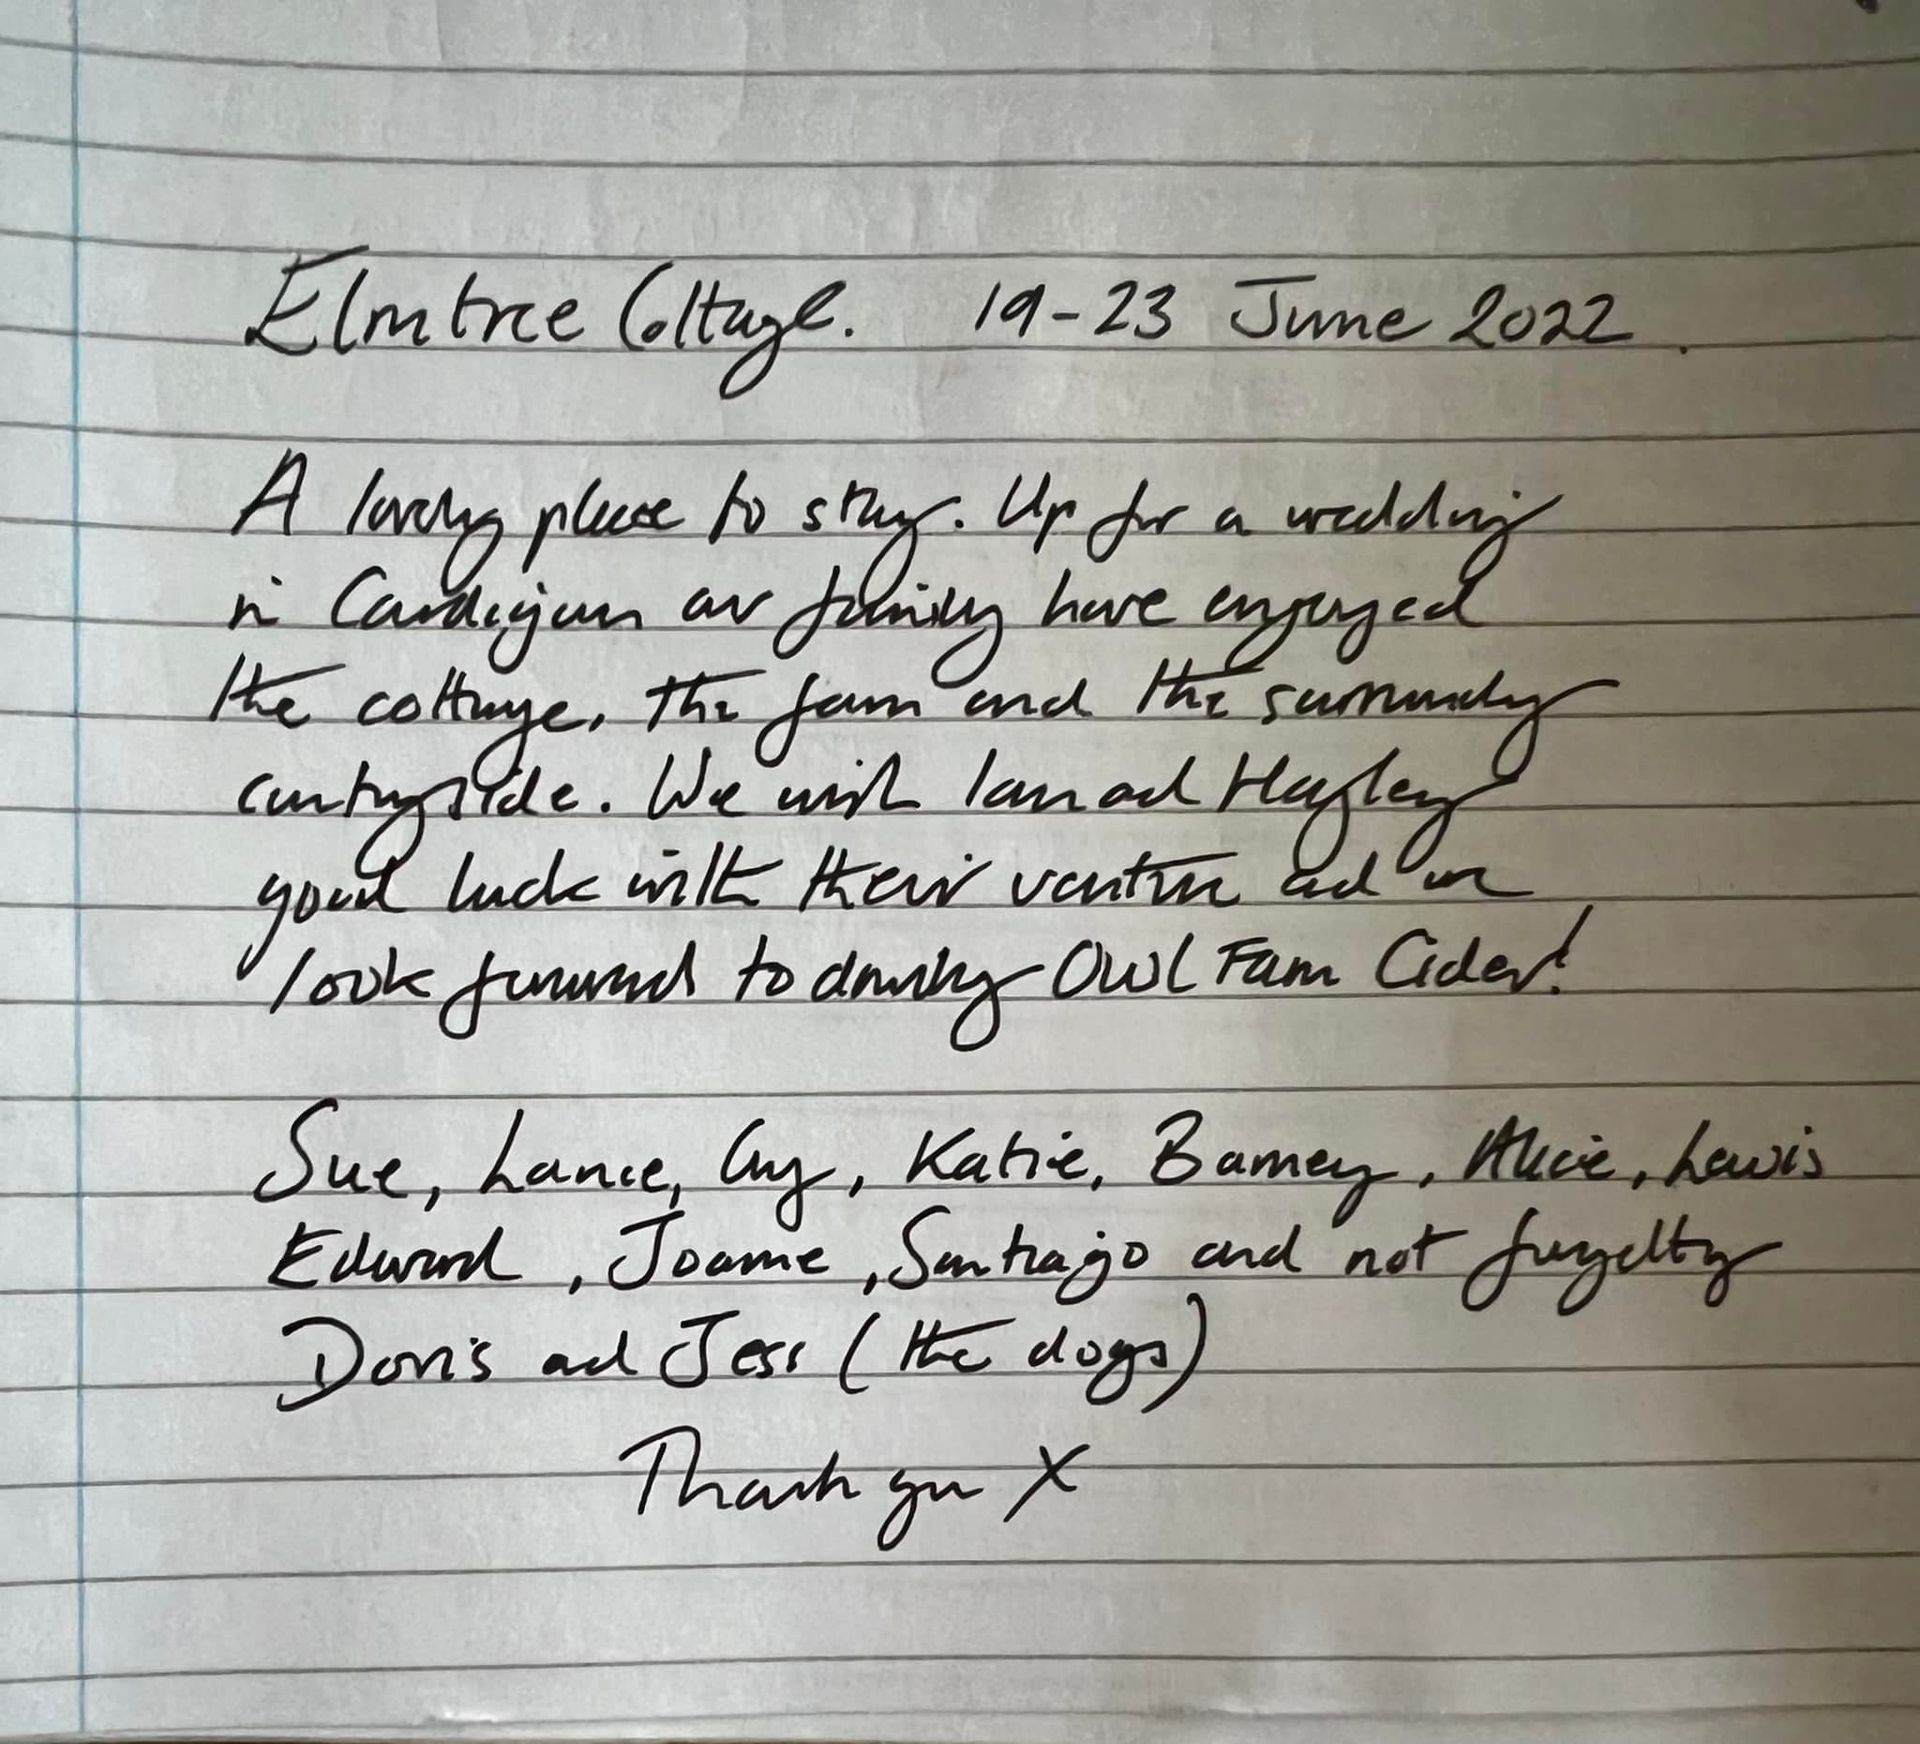 Elmtree Cottage. 19-23 June 2022.
A lovely place to stay. Up for a wedding
in Cardigan our family have enjoyed
the cottage, the farm and the surrounding
countryside. We wish Ian and Hayley
good luck with their venture and we
look forward to drinking Owl Farm Cider!
Sue, Lance, Guy, Katie, Barney, Alice, Lewis
Edward, Joanne, Santiago and not forgetting
Doris and Jess (the dogs)
Thank you X